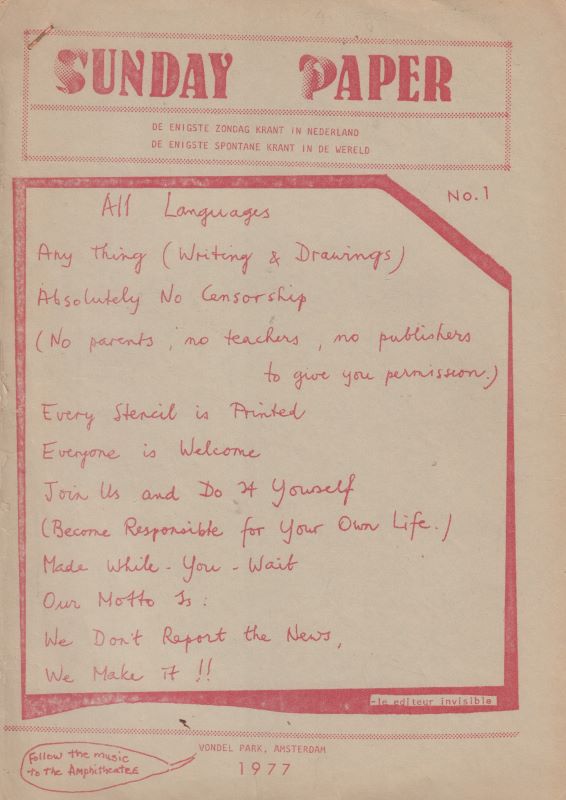 SUNDAY PAPER
DE ENIGSTE ZONDAG KRANT IN NEDERLAND
DE ENIGSTE SPONTANE KRANT IN DE WERELD
No.1
All Languages
Any Thing (Writing & Drawings)
Absolutely No Censorship
(No parents, no teachers, no publishers
to give you permission.)
Every Stencil is Printed
Everyone is Welcome
Join Us and Do It Yourself
(Become Responsible for Your Own Life.)
Made While-You-Wait
Our Motto Is:
We Don't Report the News,
We Make it !!
-le editeur invisible
VONDEL PARK, AMSTERDAM
1977
Follow the music
to the Amphitheatre